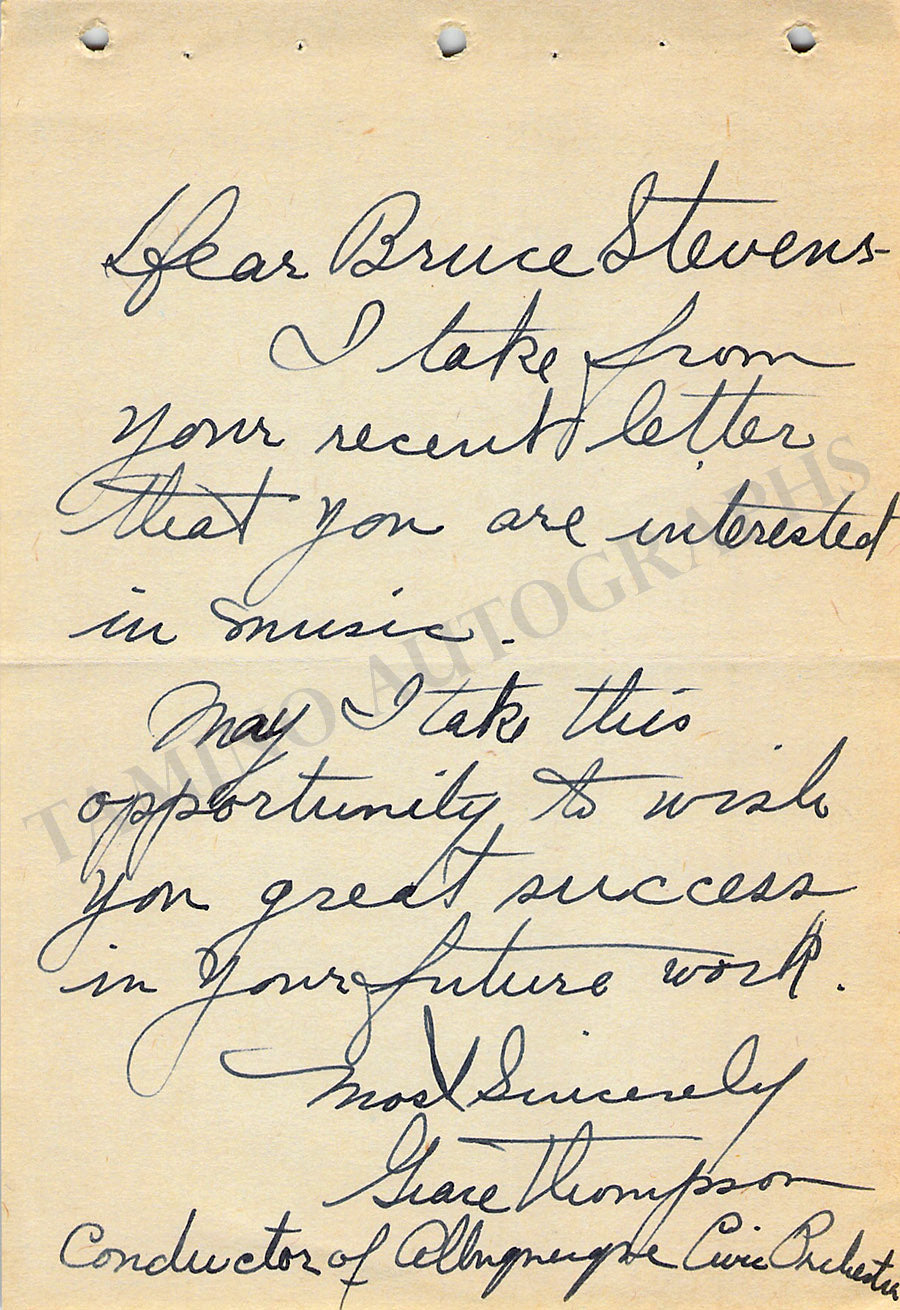 Dear Bruce Stevens-
I take from
your recent letter
that you are interested
in music.
May I take this
opportunity to wish
you great success
in your future work.
Most Sincerely
Grace Thompson
Conductor of Albuquerque Civic Orchestra
TAMINO AUTOGRAPHS